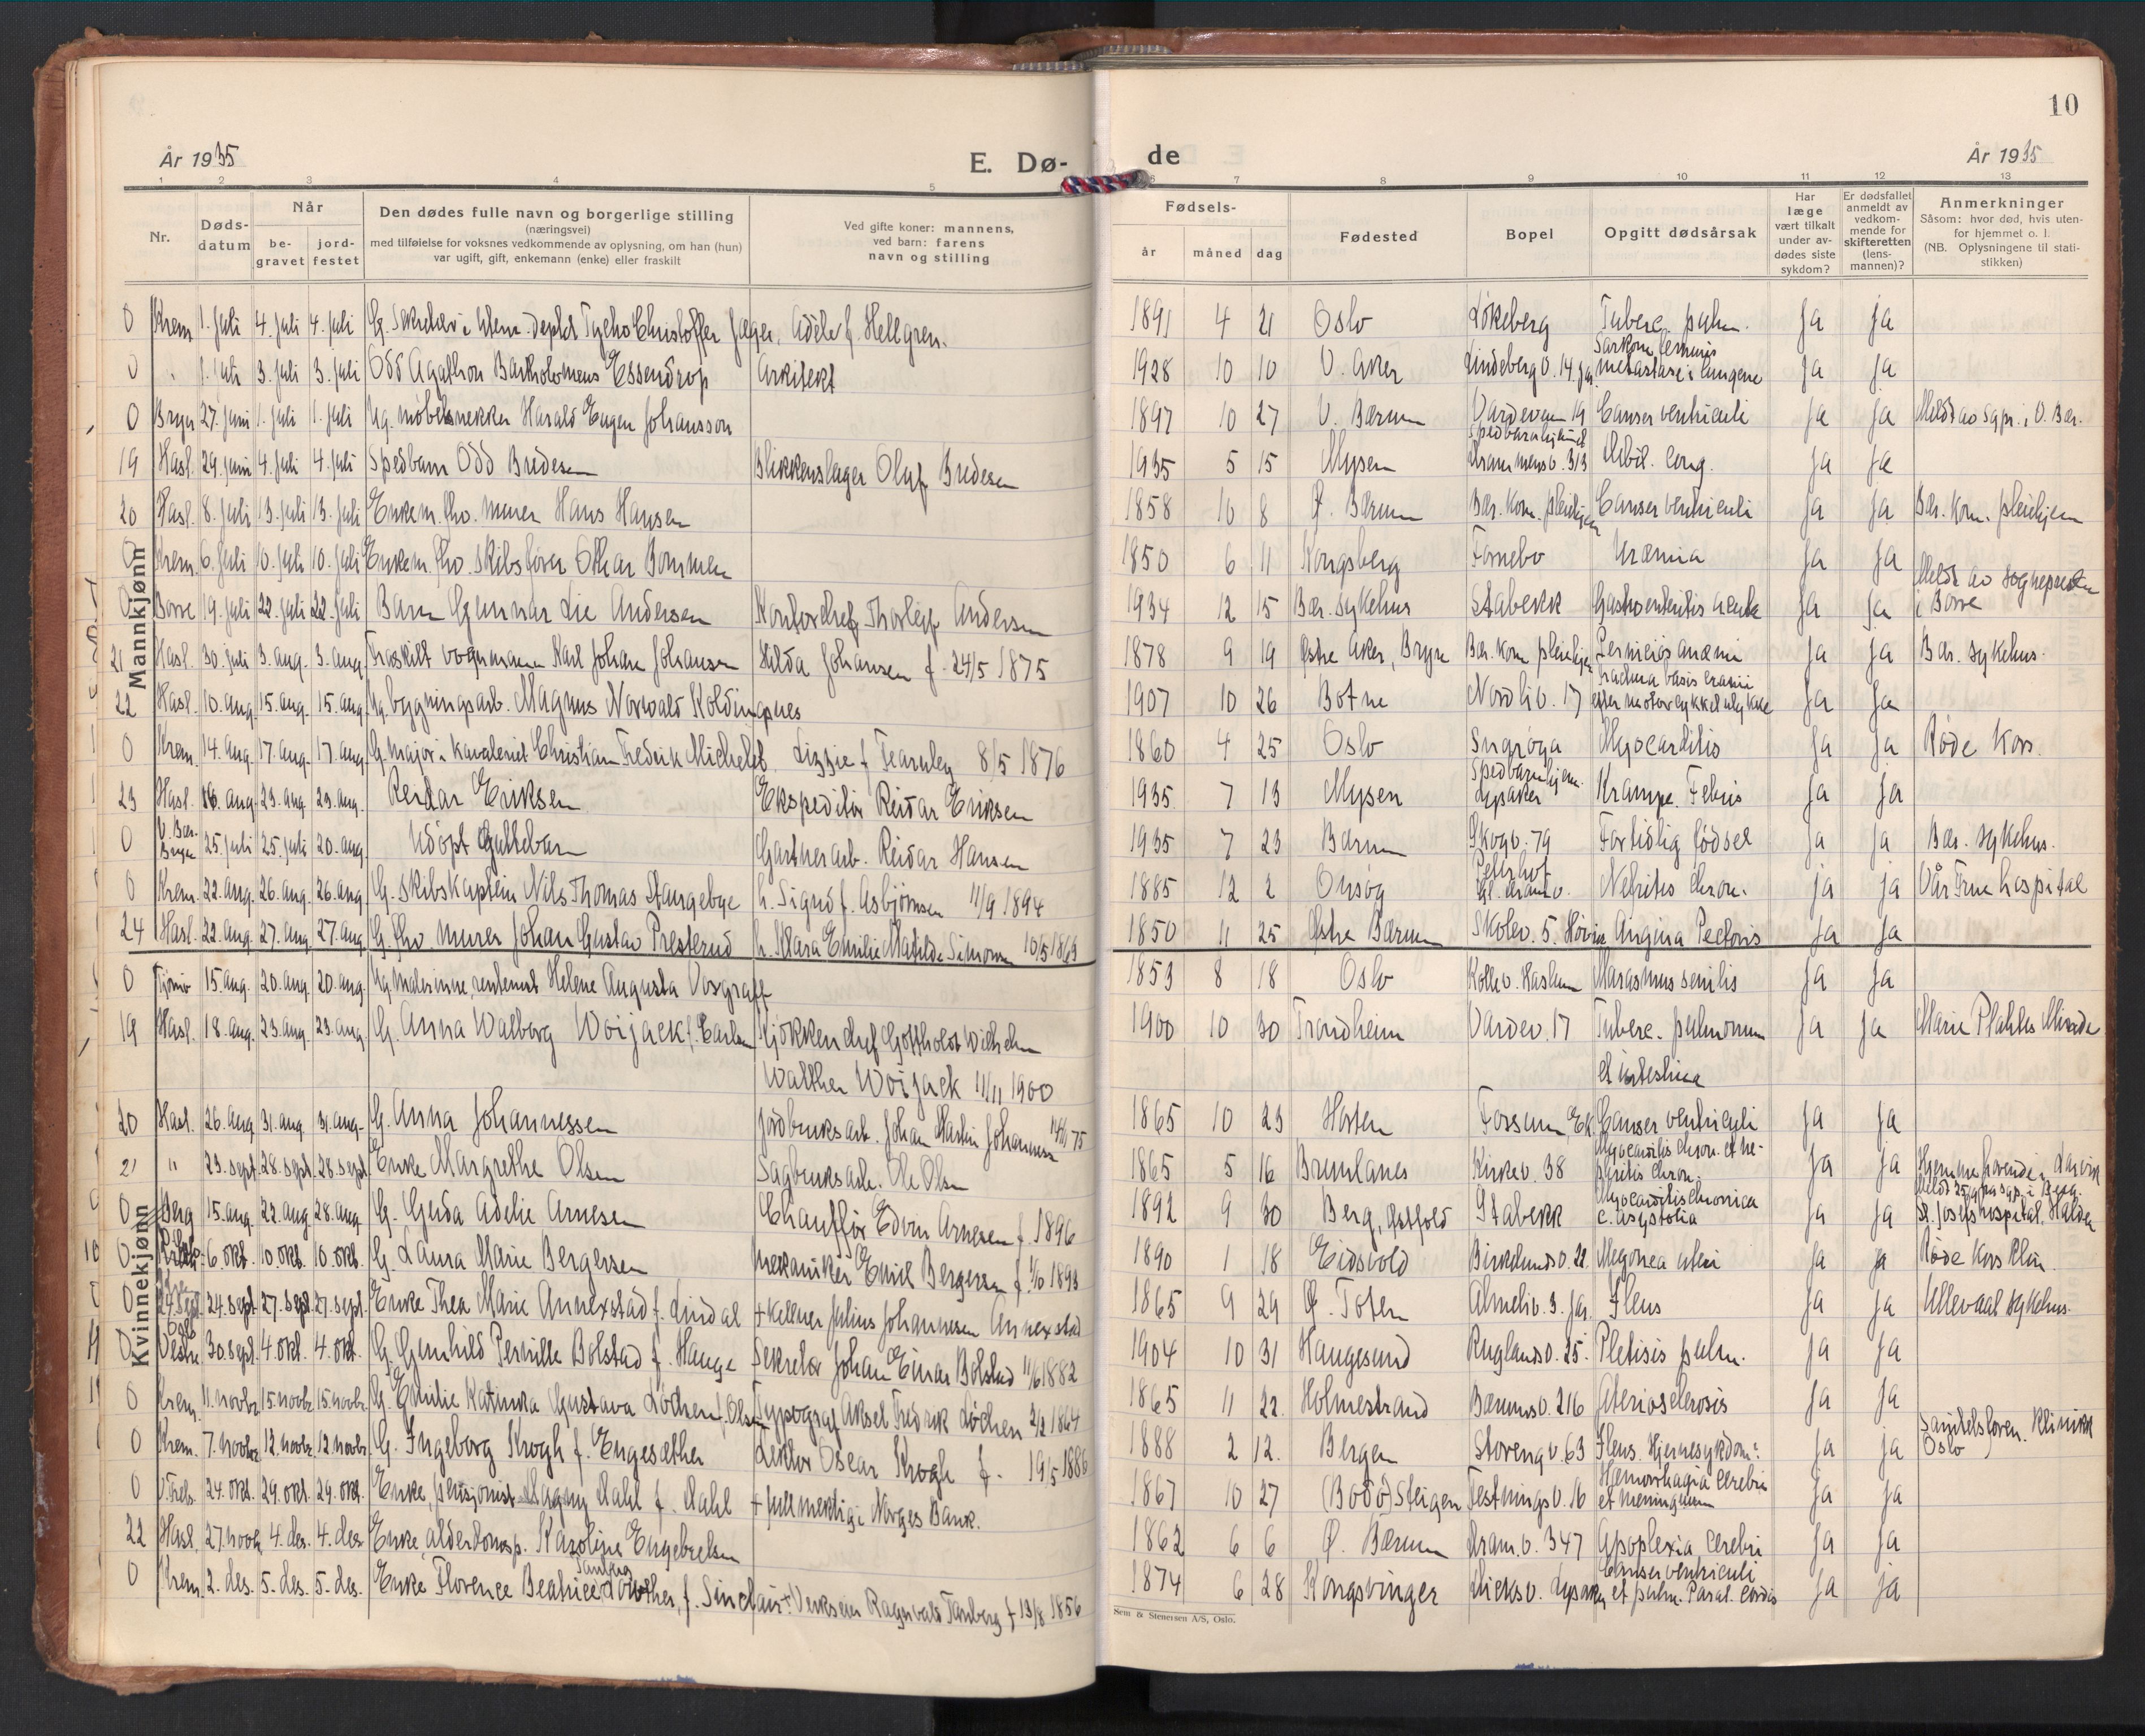 10
År 1935
E. Dø-
de
År 1935
1 2 3 4 5 6 7 8 9 10 11 12 13
Nr.
Døds-
datum
Når
be-
gravet
jord-
festet
Den dødes fulle navn og borgerlige stilling
(næringsvei)
med tilføielse for voksnes vedkommende av oplysning, om han (hun)
var ugift, gift, enkemann (enke) eller fraskilt
Ved gifte koner: mannens,
ved barn: farens
navn og stilling
Fødsels-
år måned dag
Fødested
Bopel
Opgitt dødsårsak
Har
læge
vært tilkalt
under av-
dødes siste
sykdom?
Er dødsfallet
anmeldt av
vedkom-
mende for
skifteretten
(lens-
mannen)?
Anmerkninger
Såsom: hvor død, hvis uten-
for hjemmet o. l.
(NB. Oplysningene til stati-
stikken)
Mannkjønn
0 Krem. 1. juli 4. juli 4. juli G. Sekretær i Tycho Christoffer Jæger. Adèle f. Hellgren. 1891 4 21 Oslo Løkeberg Tuberc. pulm. ja ja
0 " 1. juli 3. juli 3. juli Odd Agathon Bartholomeus Essendrop Arkitekt 1928 10 10 V. Aker Lindeberg v. 14 Jar. Sarkom femuris metastase i lungene ja ja
0 Bryn 27. juni 1. juli 1. juli Ug. møbelsnekker Harald Eugen Johansson 1897 10 27 V. Bærum Vardeveien 19 Canser ventriculi ja ja Meldt av sgpr. i V. Bær.
19 Hasl. 29. juni 4. juli 4. juli Spedbarn Odd Bredesen Blikkenslager Oluf Bredesen 1935 5 15 Mysen Spedbarnhjemmet Drammensv. 313 cong. ja ja
20 Hasl. 8. juli 13. juli 13. juli Enkem. fhv. murer Hans Hansen 1858 10 8 Ø. Bærum Bær. kom. pleiehjem Canser ventriculi ja ja Bær. kom. pleiehjem
0 Krem. 6. juli 10. juli 10. juli Enkem. fhv. skibsfører Othar Bommen 1850 6 11 Kongsberg Fornebo Uræmia ja ja
0 Borre 19. juli 22. juli 22. juli Barn Gunnar Lie Andersen Kontorchef Thorleif Andersen 1934 12 15 Bær. sykehus Stabekk Gastroenteritis acuta ja ja Meldt av sognepresten i Borre
21 Hasl. 30. juli 3. aug. 3. aug. Fraskilt vognmann Karl Johan Johansen Hilda Johansen f. 24/5 1875 1878 9 19 Østre Aker, Bryn Bær. kom. pleiehjem Perniciøs anæmi ja ja Bær. sykehus.
22 Hasl. 10. aug. 15. aug. 15. aug. Ug. bygningsarb. Magnus Norvald Koldingsnes 1907 10 26 Botne Nordliv. 17 Fractura basis cranii efter motorcykkelulykke ja ja
0 Krem. 14. aug. 17. aug. 17. aug. G. major i kavaleriet Christian Fredrik Michelet. Lizzie f. Fearnley 8/5 1876 1860 4 25 Oslo Snarøya Myocarditis ja ja Røde Kors.
23 Hasl. 18. aug. 23. aug. 23. aug. Reidar Eriksen Ekspeditør Reidar Eriksen 1935 7 13 Mysen Spedbarnhjem. Lysaker Krampe. Febris ja ja
0 V. Bær. Bryn 25. juli 25. juli 20. aug. Udøpt guttebarn Gartnerarb. Reidar Hansen 1935 7 23 Bærum Skogv. 79 Fortidlig fødsel ja ja Bær. sykehus.
0 Krem. 22. aug. 26. aug. 26. aug. G. skibskaptein Nils Thomas Stangebye h. Sigrid f. Asbjørnsen 11/9 1894 1885 12 2 Onsøy Peterhof Gl. Dram. v. Nefritis chron. ja ja Vår Frue hospital
24 Hasl. 22. aug. 27. aug. 27. aug. G. fhv. murer Johan Gustav Presterud h. Klara Emilie Matilde Simonsen 10/5 1863 1850 11 25 Østre Bærum Skolev. 5. Høvik Angina Pectoris ja ja
Kvinnekjønn
0 Tjømø 15. aug. 20. aug. 20. aug. Ug. malerinne, rentenist Helene Augusta Vosgraff 1853 8 18 Oslo Kollev. Haslum Marasmus senilis ja ja
19 Hasl. 18. aug. 23. aug. 23. aug. G. Anna Walborg Woijack f. Carlsen Kjøkkenchef Gotthold Wilhelm 1900 10 30 Trondheim Vardev. 17 Tuberc. pulmonum ja ja Marie Plahtes Minde
Walther Woijack 11/11 1900 et intestina
20 Hasl. 26. aug. 31. aug. 31. aug. G. Anna Johannessen Jordbruksarb. Johan Martin Johannessen 75 1865 10 23 Horten Fossum, Canser ventriculi ja ja
21 " 23. sept. 28. sept. 28. sept. Enke Margrethe Olsen Sagbruksarb. Ole Olsen 1865 5 16 Brunlanes Kirkev. 38 Myocarditis chron. et ne-phritis chron. ja ja Hjemmehørende i Larvik
0 Berg 15. aug. 22. aug 28. aug. G. Gerda Adelie Arnesen Chauffør Edvin Arnesen f. 1896 1892 9 30 Berg, Østfold Stabekk Myocarditis chronica c. asystolia ja ja St. Josefs hospital, Halden
0 6. okt. 10. okt. 10. okt. G. Laura Marie Bergersen Mekaniker Emil Bergersen f. 1/10 1893 1890 1 18 Eidsvold Birkelundsv. 22 uteri ja ja Røde Kors Klin.
0 24. sept. 27. sept 27. sept. Enke Thea Marie Annexstad f. Lindal + Kellner Julius Johannesen Annexstad 1865 9 29 Ø. Toten Almeliv. 3. Jar. Ileus ja ja Ullevaal sykehus.
0 Vestre 30. sept. 4. okt. 4. okt. G. Gunhild Pernille Bolstad f. Hauge Sekretær Johan Einar Bolstad 11/6 1882 1904 10 31 Haugesund Ruglandv. 25 Phtisis pulm. ja ja
0 Krem. 11. novbr. 15. novbr. 15. novbr. G. Emilie Katinka Gustava Løchen f. Olsen Typograf Aksel Fredrik Løchen 2/2 1864 1865 11 22. Holmestrand Bærumsv. 216 Aterioselerosis ja ja
0 Krem. 7. novbr 12. novbr. 12 novbr. G. Ingeborg Krogh f. Engesæther Lektor Oscar Krogh f. 19/5 1886 1888 2 12. Bergen Storengv. 63 Ileus. Hjernesykdom? ja ja Sanitetsforen. Klinikk Oslo
0 V. Frels. 24. okt. 29. okt. 29. okt. Enke, pensjonist Dagny Dahl f. Dahl + fullmektig i Norges Bank. 1867 10 27 (Bodø) Steigen Festningsv. 16 Hæmorrhagia cerebri et meningeum ja ja
22 Hasl. 27. novbr. 4. des. 4. des. Enke, alderdomsp. Karoline Engebretsen 1862 6 6 Ø. Bærum Dram. v. 347 Apoplexia cerebri ja ja
0 Krem. 2. des. 5. des. 5. des. Enke Florence Beatrice Tanberg, f. Sinclair + Verkseier Ragnvald Tanberg f 13/8 1856 1874 6 28 Kongsvinger Dicksv. Lysaker Canser ventriculi et pulm. Paral. cordis ja ja
Sem & Stenersen A/S, Oslo.